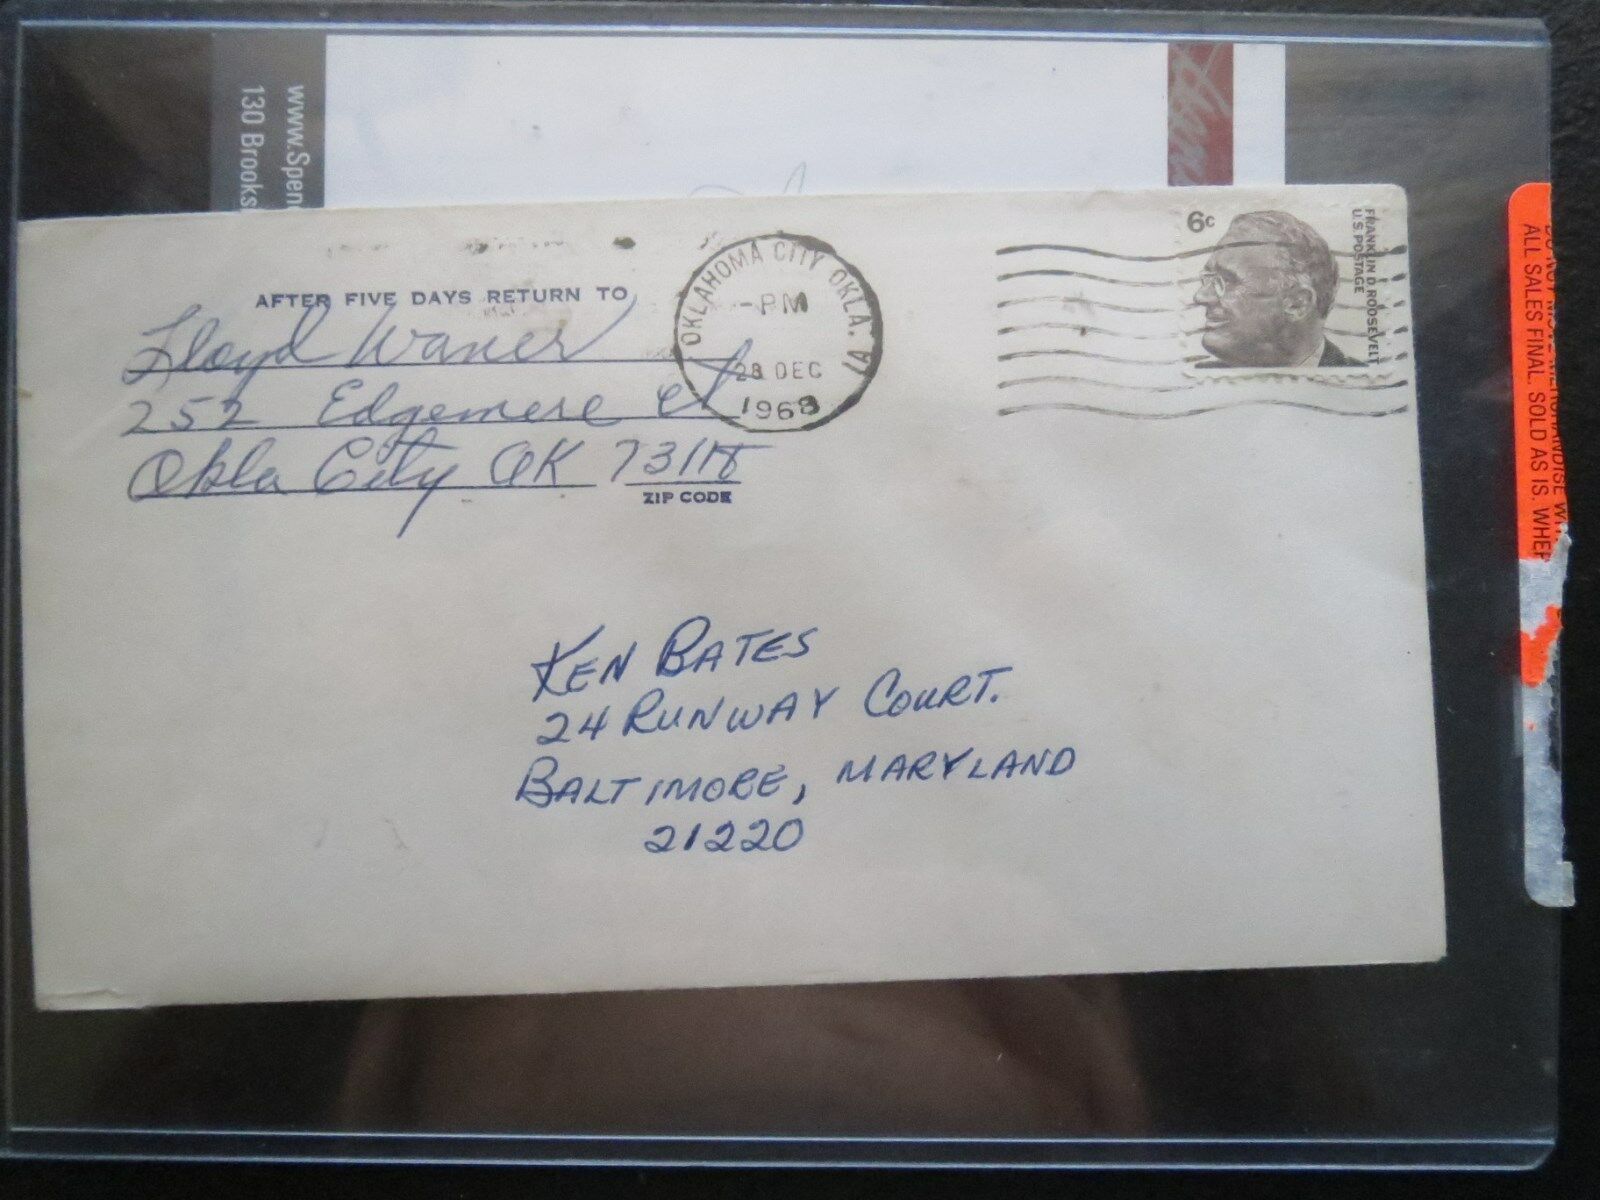 www.Spen
130 Brooks
AFTER FIVE DAYS RETURN TO
Lloyd Waner
252 Edgemere Ct
Okla City OK 73118
ZIP CODE
OKLAHOMA CITY OKLA.
-PM
28 DEC
1968
6c
FRANKLIN D. ROOSEVELT
U.S. POSTAGE
KEN BATES
24 RUNWAY COURT.
BALTIMORE, MARYLAND
21220
ALL SALES FINAL. SOLD AS IS. WHER